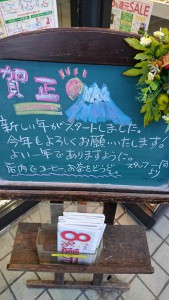 SALE
賀正
新しい年がスタートしました。
今年もよろしくお願いいたします。
よい一年でありますように。
スタッフ一同
より
店内でコーヒー、お茶をどうぞ